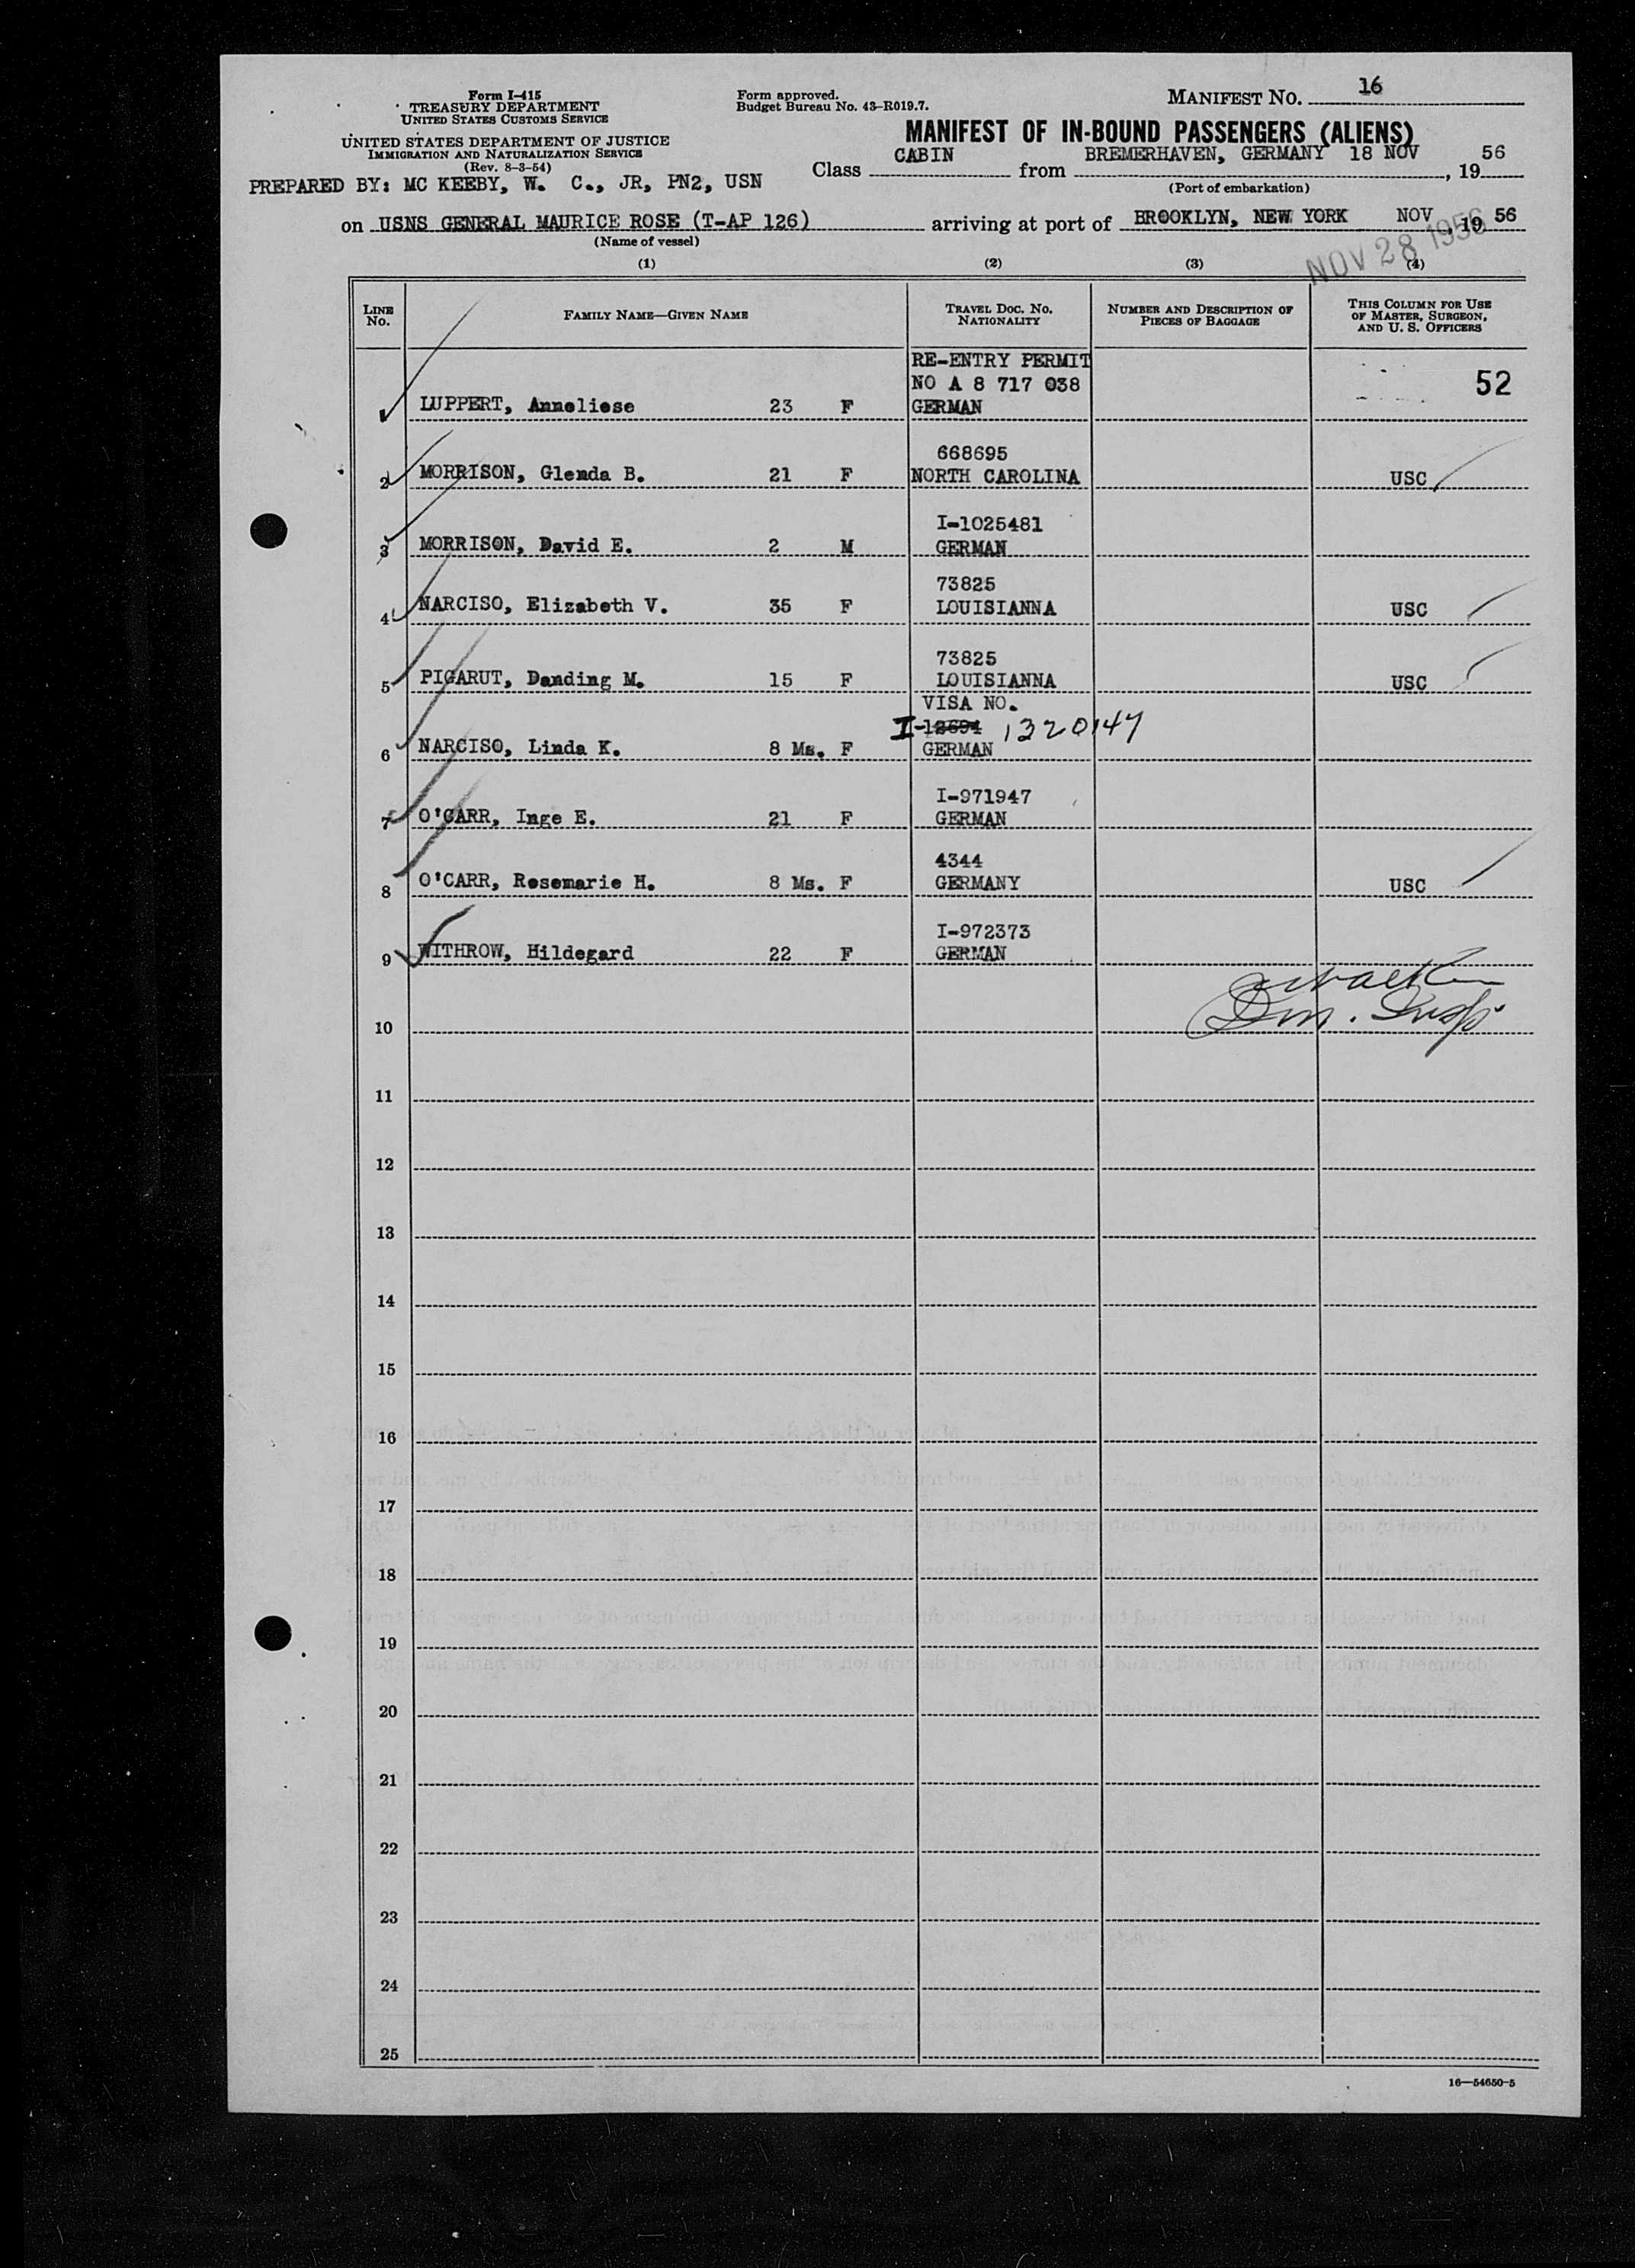 Form I-415
TREASURY DEPARTMENT
UNITED STATES CUSTOMS SERVICE
UNITED STATES DEPARTMENT OF JUSTICE
IMMIGRATION AND NATURALIZATION SERVICE
(Rev. 8-3-54)
PREPARED BY: MC KEEBY, W. C., JR, PN2, USN
Form approved.
Budget Bureau No. 43-R019.7.
MANIFEST NO. 16
MANIFEST OF IN-BOUND PASSENGERS (ALIENS)
Class CABIN from BREMERHAVEN, GERMANY 18 NOV, 19 56
(Port of embarkation)
on USNS GENERAL MAURICE ROSE (T-AP 126) arriving at port of BROOKLYN, NEW YORK NOV, 19 56
(Name of vessel)
NOV 28 1956
(1) (2) (3) (4)
LINE No. FAMILY NAME—GIVEN NAME TRAVEL DOC. NO. NATIONALITY NUMBER AND DESCRIPTION OF PIECES OF BAGGAGE THIS COLUMN FOR USE OF MASTER, SURGEON, AND U. S. OFFICERS
RE-ENTRY PERMIT
NO A 8 717 038 52
LUPPERT, Anneliese 23 F GERMAN
668695
2 MORRISON, Glenda B. 21 F NORTH CAROLINA USC
I-1025481
3 MORRISON, David E. 2 M GERMAN
73825
4 NARCISO, Elizabeth V. 35 F LOUISIANNA USC
73825
5 PIGARUT, Danding M. 15 F LOUISIANNA USC
VISA NO.
I-12694 1320147
6 NARCISO, Linda K. 8 Ms. F GERMAN
I-971947
7 O'CARR, Inge E. 21 F GERMAN
4344
8 O'CARR, Rosemarie H. 8 Ms. F GERMANY USC
I-972373
9 WITHROW, Hildegard 22 F GERMAN
10
11
12
13
14
15
16
17
18
19
20
21
22
23
24
25
16—54650-5